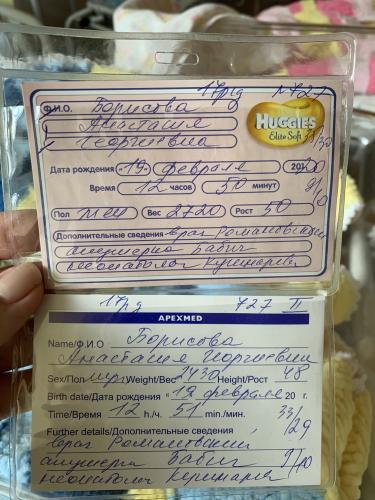 17рд N727
Ф.И.О. Борисова
Анастасия
Георгиевна
HUGGIES
Elite Soft
31/30
Дата рождения «19» февраля 2020
Время 12 часов 50 минут
9/10
Пол Вес 2720 Рост 50
Дополнительные сведения врач Романовский
акушерка Бабич
неонатолог
17рд 727 II
APEXMED
Name/Ф.И.О Борисова
Анастасия Георгиевна
Sex/Пол Weight/Вес 2430 Height/Рост 48
Birth date/Дата рождения «19 февраля 20 г.
Time/Время 12 h./ч. 51 min./мин.
33/29
Further details/Дополнительные сведения
врач Романовский
акушерка Бабич 9/10
неонатолог